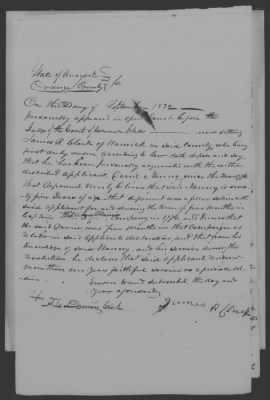 State of New York
Orange County } ss
On this day of September 1832
personally appeared in open court before the
Judges of the Court of Common Pleas now sitting
James R Clark of Warwick in said County who being
first duly sworn according to law doth depose and say
that he has been personally acquainted with the within
described applicant David Nanny, since the year 1776
that deponent verily believes that said Nanny is seventy
five years of age that deponent was a fellow soldier with
said applicant for and during the term of five months in
Captain Company in 1776 and knows that
the said David was five months in that Campaign as
stated in said applicants declaration, and that from his
knowledge of said Nanny, and his service during the
revolution he declares that said applicant rendered
more than one year faithful service as a private sol
dier. Sworn to and subscribed the day and
year aforesaid
James R Clark
Clerk